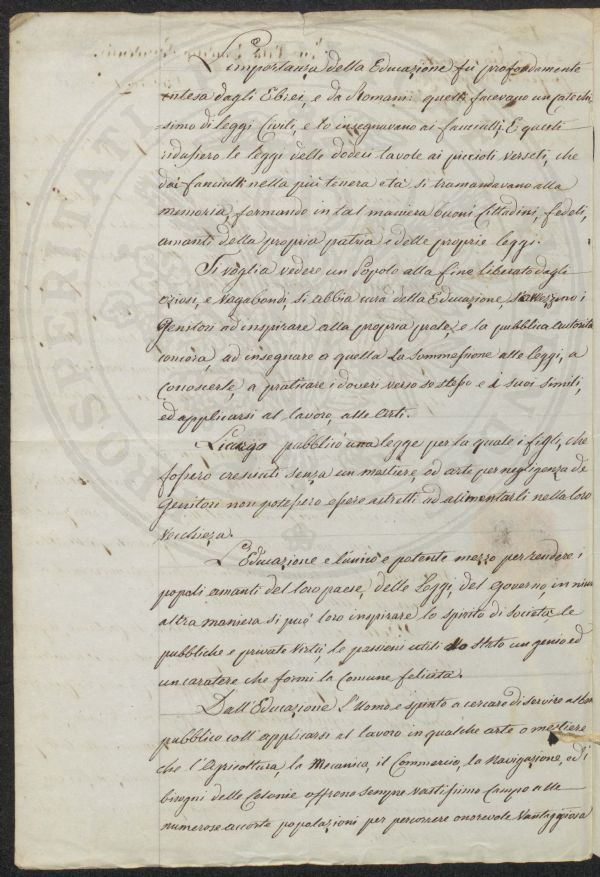 L'importanza della Educazione fù profondamente
intesa dagli Ebrei, e da Romani: questi facevano un catechi-
simo di leggi Civili, e lo insegnavano ai fanciulli: E questi
ridussero le leggi delle dodeci tavole ai piccioli verseti, che
dai fanciulli nella più tenera età si tramandavano alla
memoria, formando in tal maniera buoni Cittadini, fedeli,
amanti della propria patria e delle proprie leggi.
Si voglia vedere un Popolo alla fine liberato dagli
oziosi, e Vagabondi, si abbia cura della Educazione, s'avezzino i
Genitori ad inspirare alla propria prole, e la pubblica autorità
ancora, ad insegnare a quella La Sommessione alle leggi, a
conoscerle, a praticare i doveri verso se stesso e i suoi simili,
ed applicarsi al lavoro, alle arti.
Licurgo pubblicò una legge per la quale i figli, che
fossero cresciuti senza un mestiere, od arte per negligenza de
Genitori non potessero essere astretti ad alimentarli nella loro
Vecchiezza.
L'Educazione e l'unico e potente mezzo per rendere i
popoli amanti del loro paese, delle Leggi, del Governo, in niun
altra maniera si può loro inspirare lo spirito di società le
pubbliche e private Virtù, le passioni utili allo Stato un genio ed
un caratere che formi la Comune felicità.
Dall'Educazione l'Uomo e spinto a cercare di servire al ben
pubblico coll'applicarsi al lavoro in qualche arte o mestiere
che l'Agricoltura, la Mecanica, il Commercio, la Navigazione, ed i
bisogni delle Colonie offrono sempre vastissimo Campo alle
numerose accorte popolazioni per percorrere onorevole Vantaggiosa
PROSPERITATI